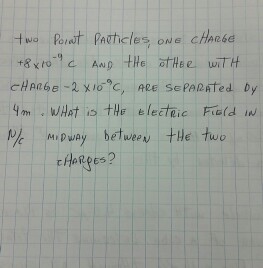 two Point Particles, ONE CHARGE
+8x10⁻⁹ C AND tHE OTHER WITH
CHARGE -2x10⁻⁹C, ARE SEPARATED by
4m. WHAt is tHE electric Field in
N/c MIDWAY between tHE two
cHARGES?